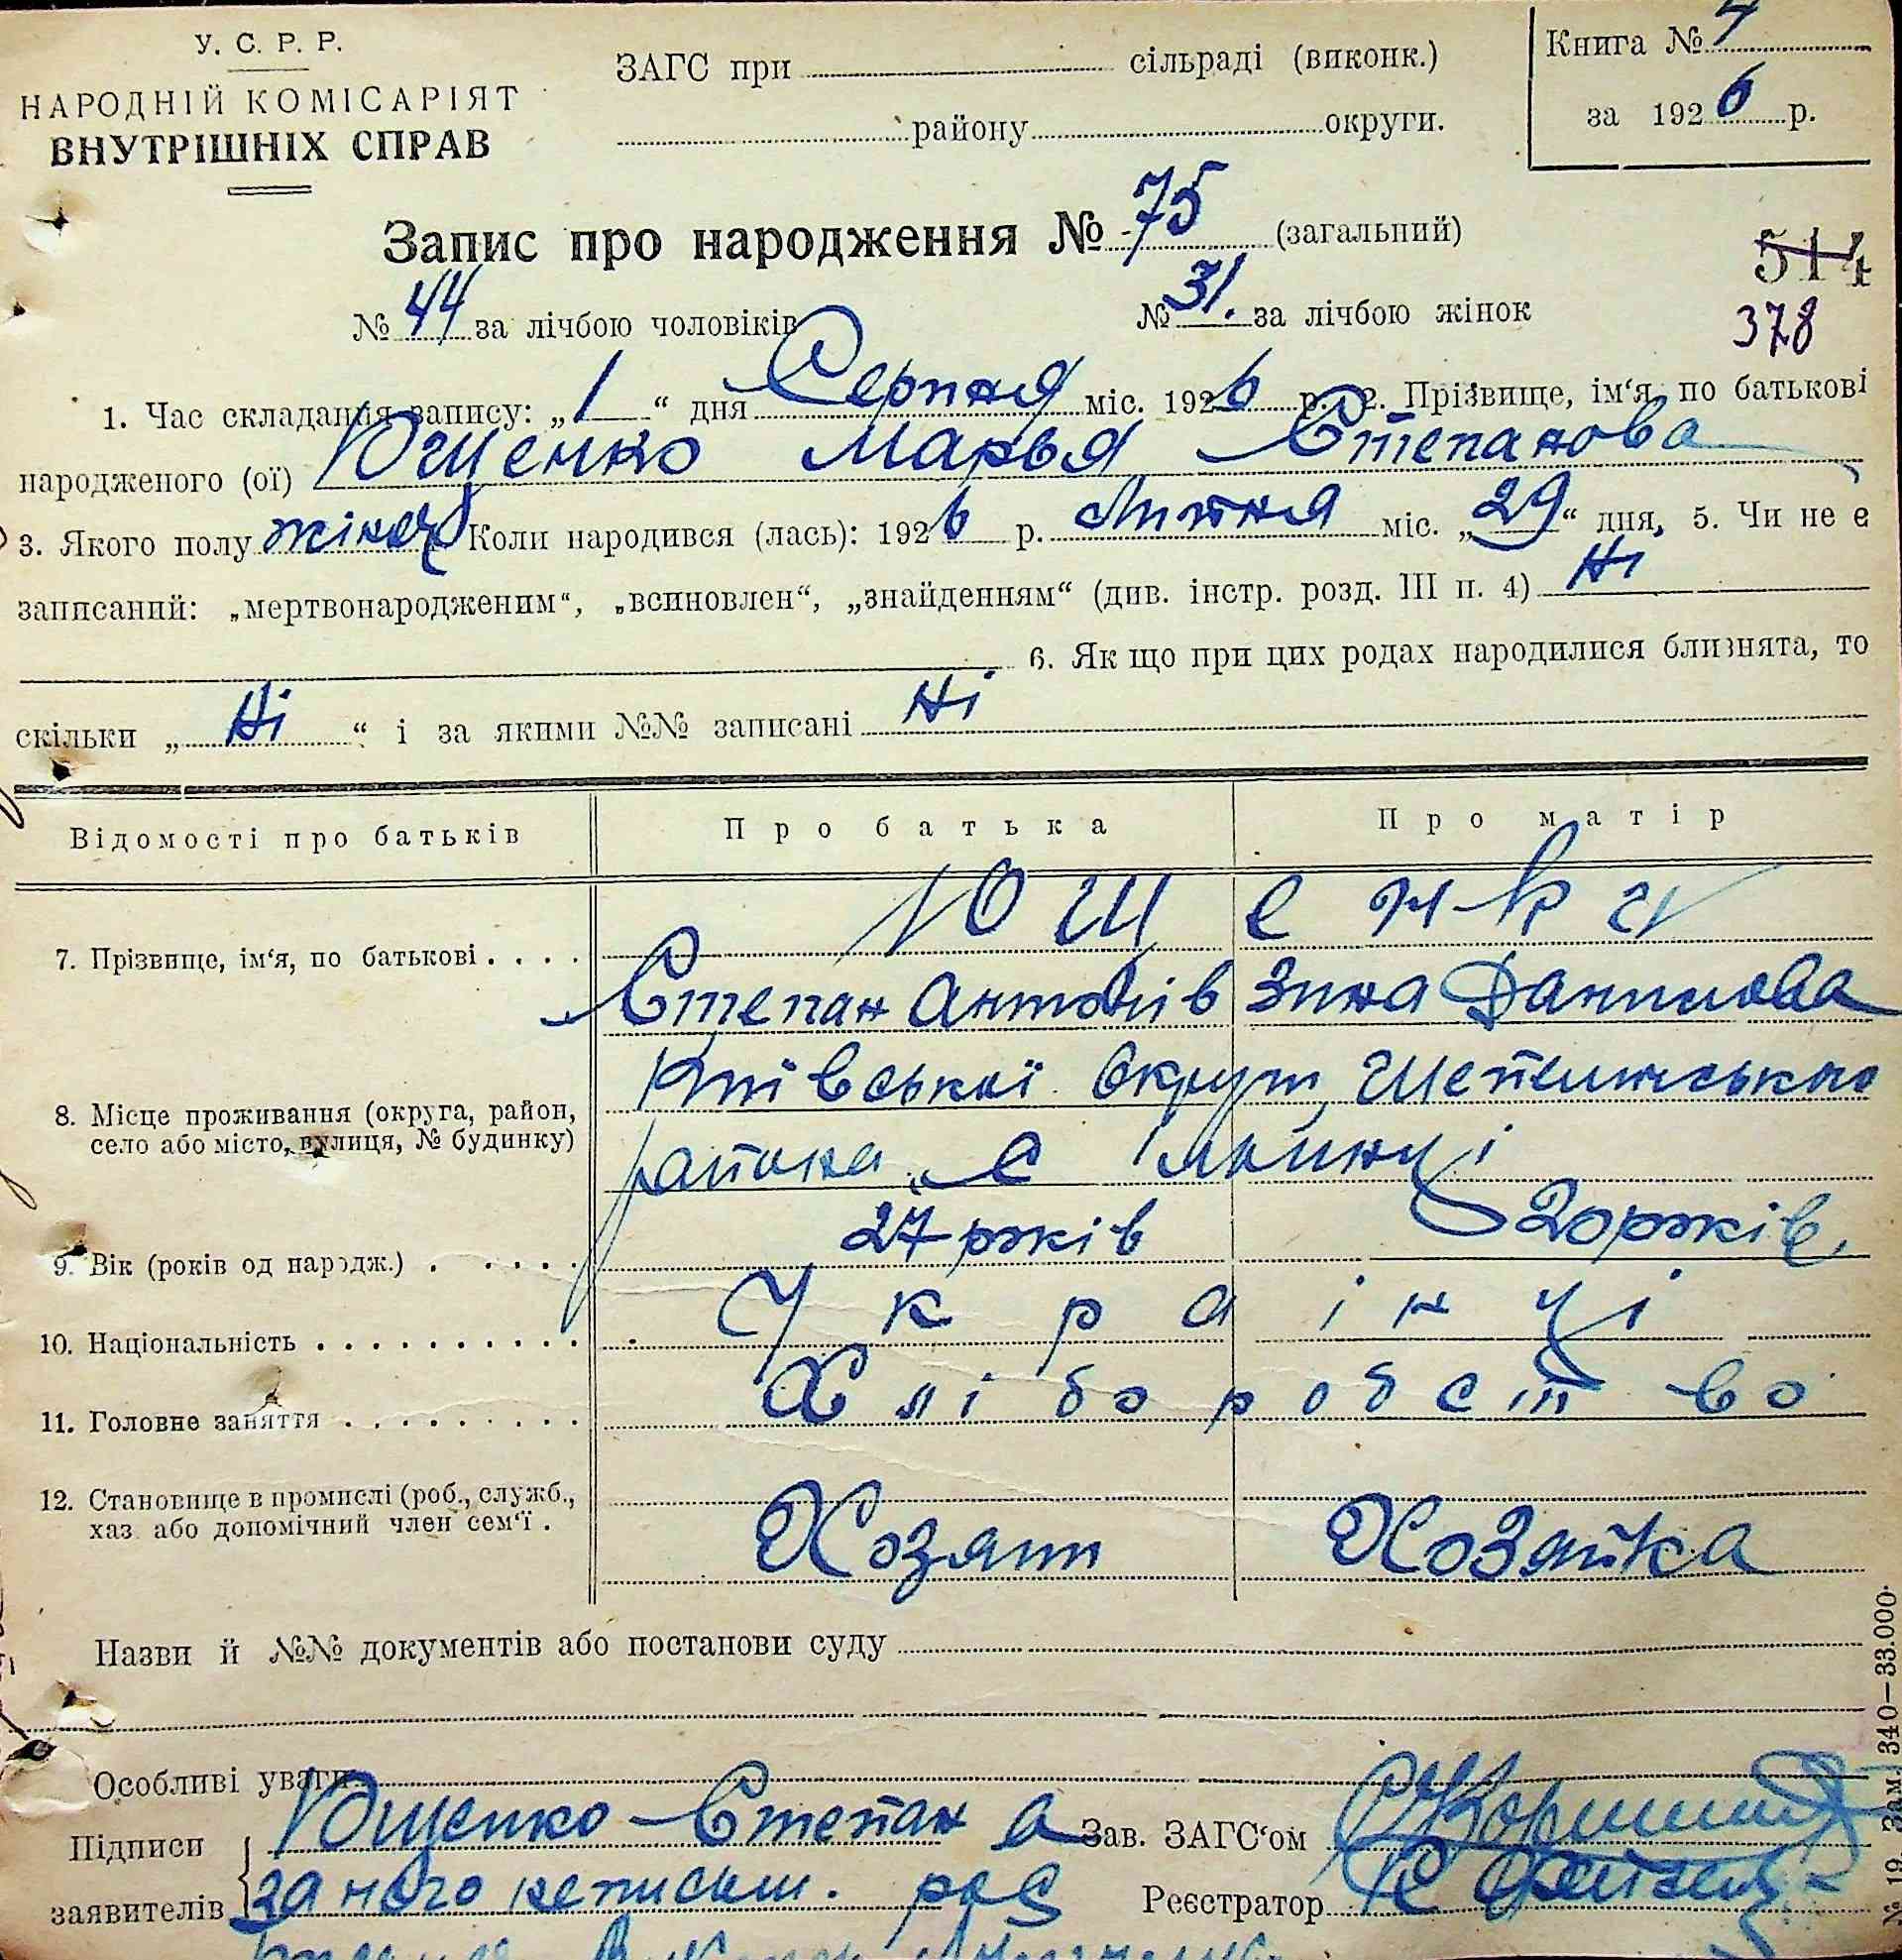 У. С. Р. Р.
НАРОДНІЙ КОМІСАРІЯТ
ВНУТРІШНІХ СПРАВ
ЗАГС при сільраді (виконк.)
району округи.
Книга №
за 1926 р.
Запис про народження № 75 (загальний)
514
№ 44 за лічбою чоловіків № 31. за лічбою жінок
378
1. Час складання запису: „1“ дня Серпня міс. 1926 р. 2. Прізвище, ім‘я, по батькові
народженого (ої) Ющенко Марья Степанова
3. Якого полу жіноч Коли народився (лась): 1926 р. Липня міс. „29“ дня, 5. Чи не є
записаний: „мертвонародженим“, „всиновлен“, „знайденням“ (див. інстр. розд. III п. 4) Ні
6. Як що при цих родах народилися близнята, то
скільки „ Ні “ і за якими №№ записані Ні
Відомості про батьків Про батька Про матір
7. Прізвище, ім‘я, по батькові . . . . Ющенки
Степан Антонів Зина Данилова
8. Місце проживання (округа, район, село або місто, вулиця, № будинку) Київської Округи,
района с
9. Вік (років од народж.) . . . . . 27 років 20 років,
10. Національність . . . . . . . . . . Українці
11. Головне заняття . . . . . . . . . Хліборобство
12. Становище в промислі (роб., служб.,
хаз. або допомічний член сем‘ї . Хозяин Хозяйка
Назви й №№ документів або постанови суду
Особливі уваги
Підписи заявителів Ющенко Степан а Зав. ЗАГС‘ом
за його неписьм. Реєстратор
№ 19. Зам. 340—33.000.